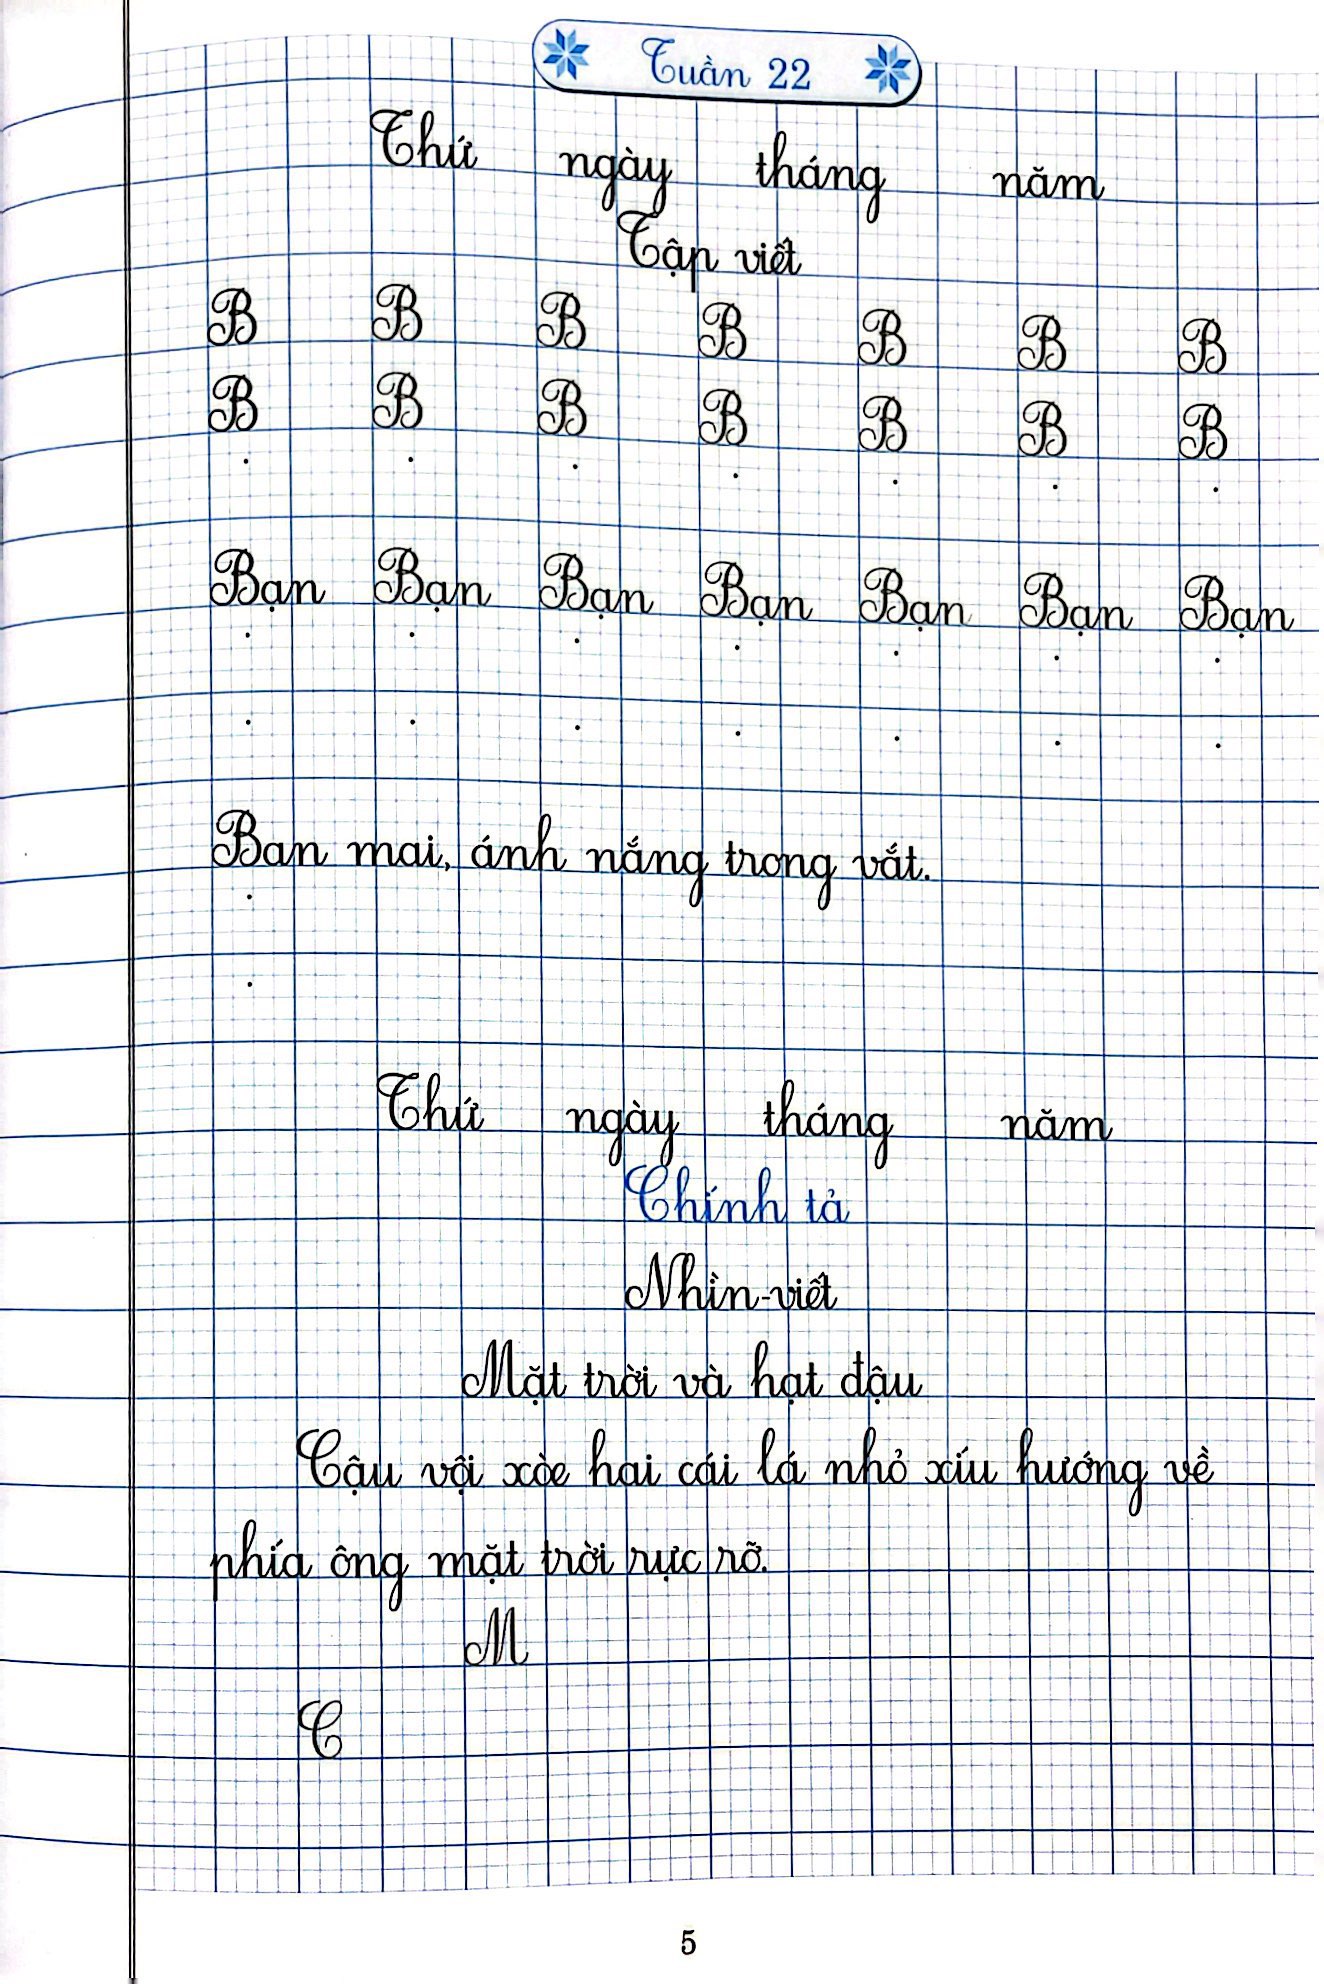 Tuần 22
Thứ ngày tháng năm
Tập viết
B B B B B B B
B B B B B B B
Bạn Bạn Bạn Bạn Bạn Bạn Bạn
Ban mai, ánh nắng trong vắt.
Thứ ngày tháng năm
Chính tả
Nhìn-viết
Mặt trời và hạt đậu
Cậu vội xòe hai cái lá nhỏ xíu hướng về
phía ông mặt trời rực rỡ.
M
C
5